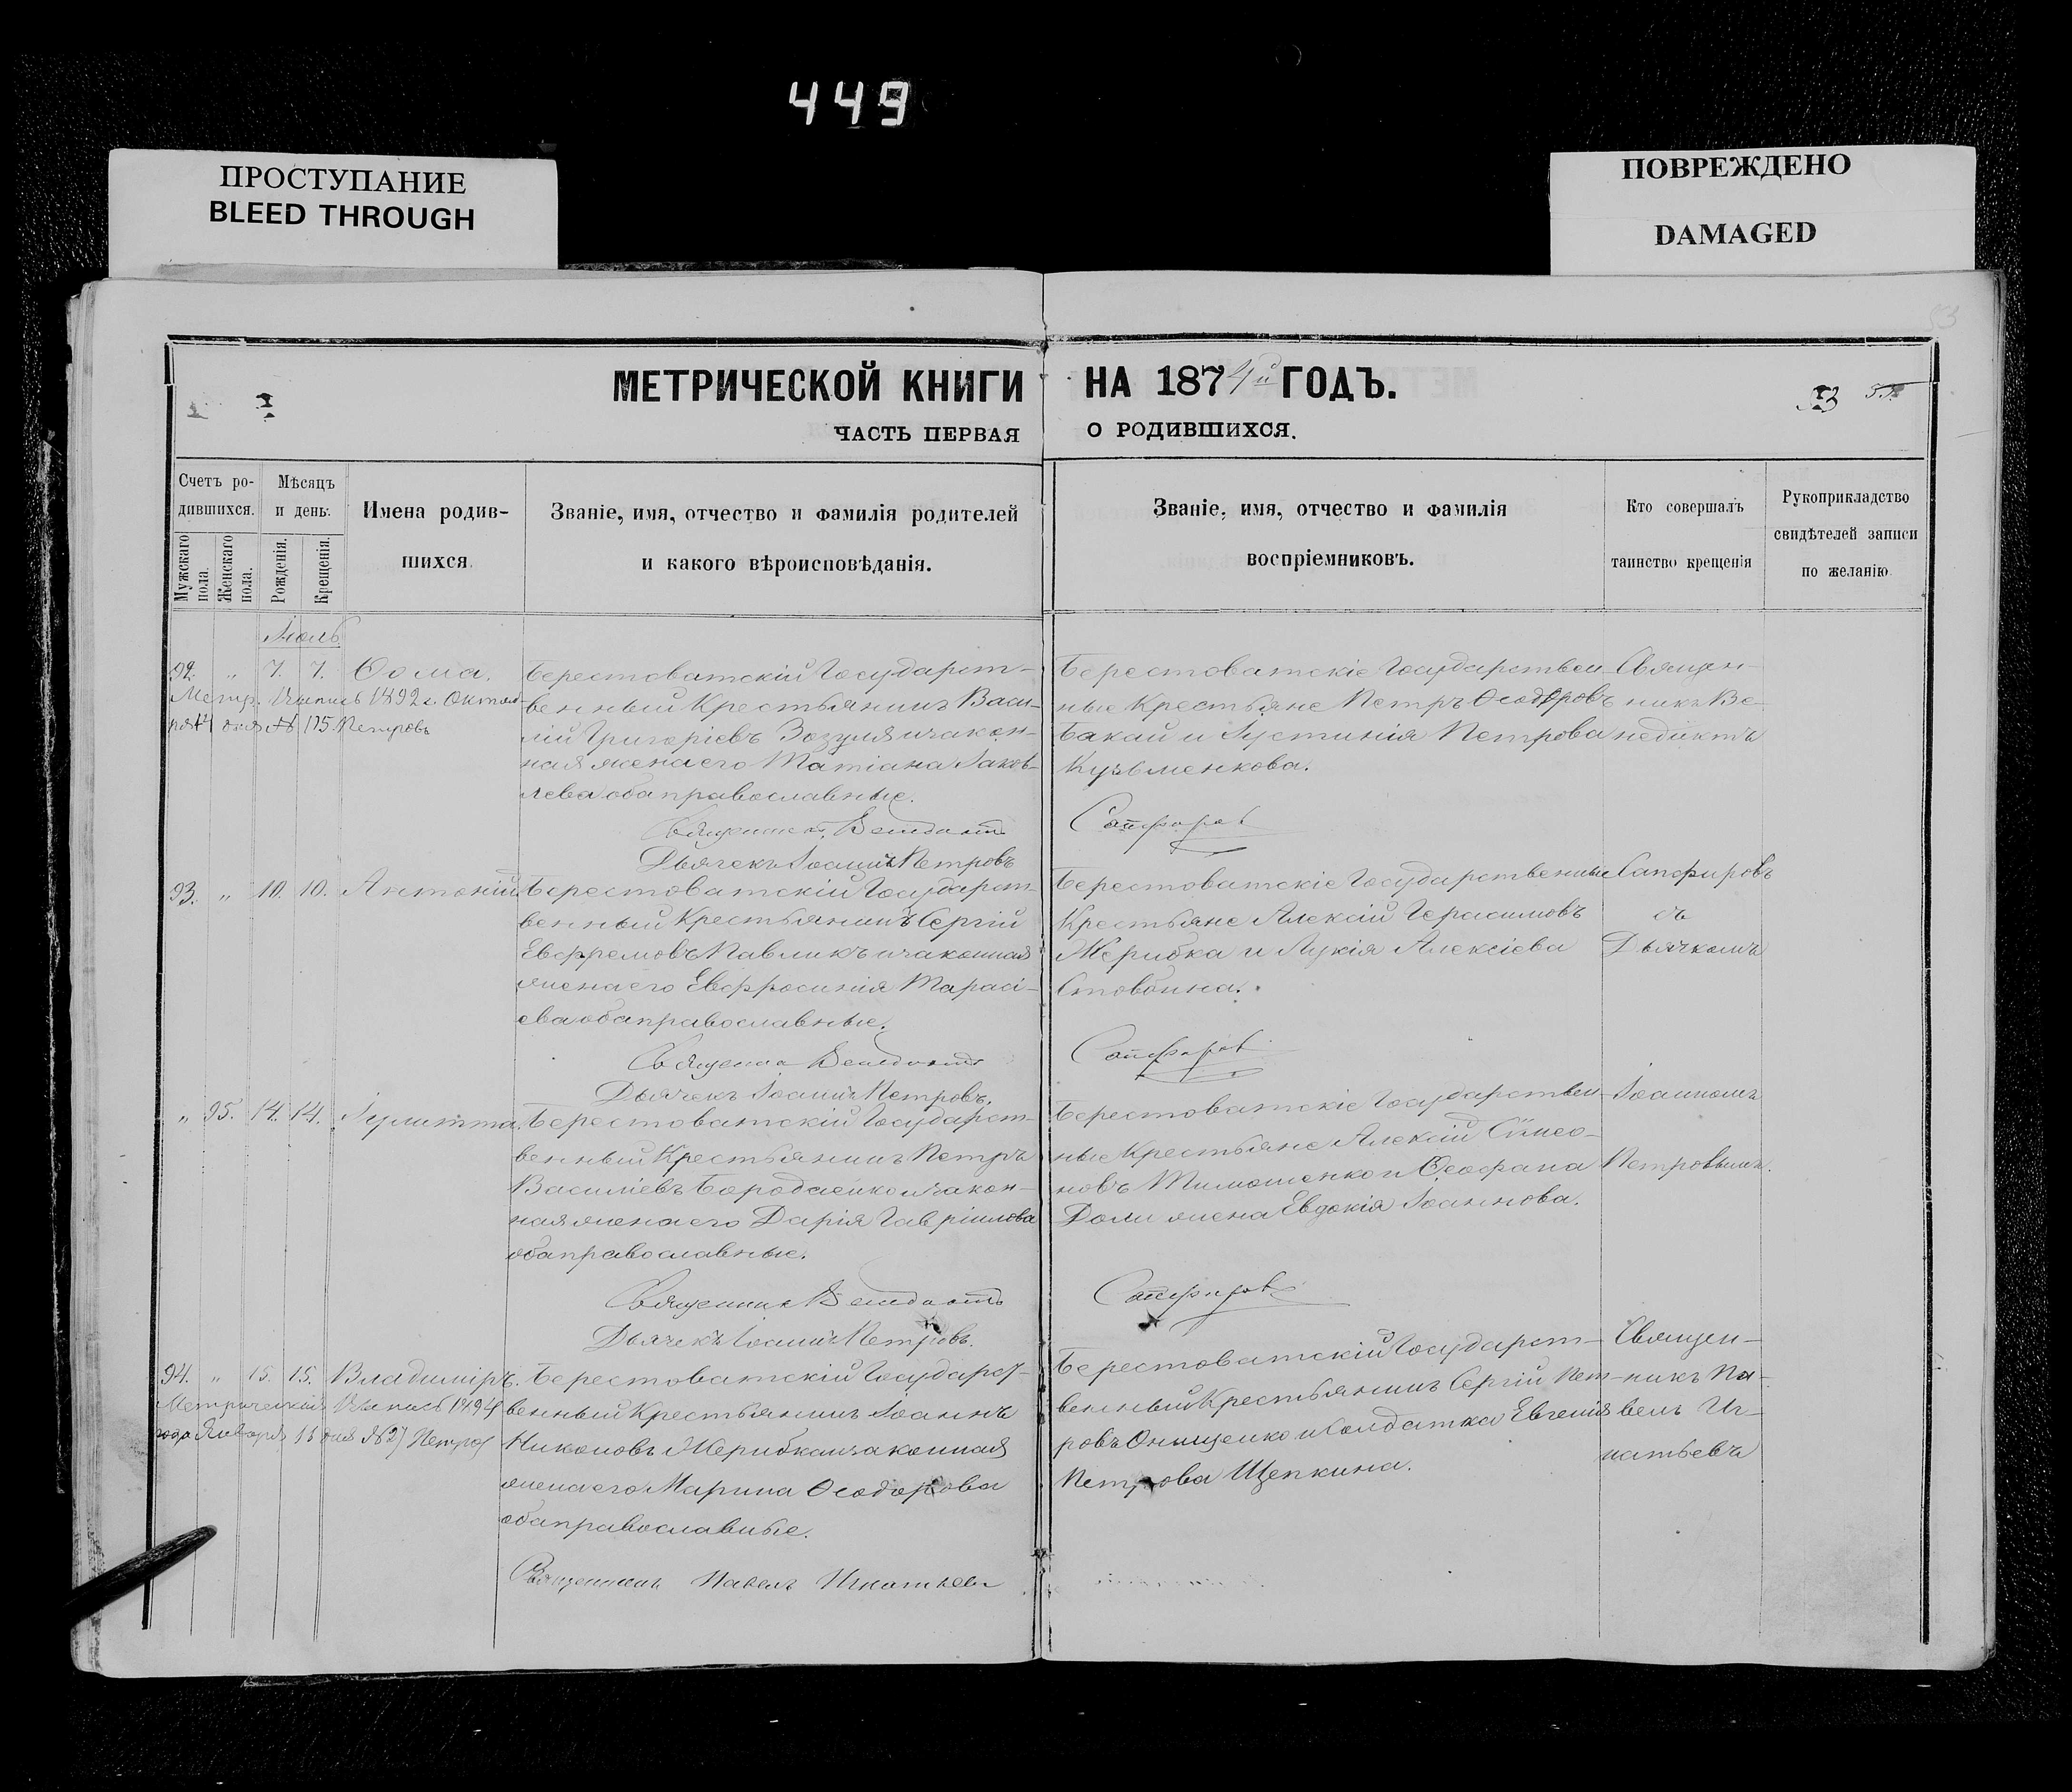 449
ПРОСТУПАНИЕ
BLEED THROUGH
ПОВРЕЖДЕНО
DAMAGED
53
МЕТРИЧЕСКОЙ КНИГИ НА 1874й ГОДЪ.
ЧАСТЬ ПЕРВАЯ О РОДИВШИХСЯ.
53
Счетъ ро-
дившихся.
Мужскаго пола.
Женскаго пола.
Мѣсяцъ
и день.
Рожденія.
Крещенія.
Имена родив-
шихся.
Званіе, имя, отчество и фамилія родителей
и какого вѣроисповѣданія.
Званіе, имя, отчество и фамилія
воспріемниковъ.
Кто совершалъ
таинство крещенія
Рукоприкладство
свидѣтелей записи
по желанію.
Іюль
92. " 7. 7. Ѳома.
Метр. выпись 1892 г. Октяб-
ря 14 дня № 115. Петровъ
Берестоватскій Государст-
венный Крестьянинъ Васи-
лій Григоріевъ Зозуля и закон-
ная жена его Татіана Іаков-
лева оба православные.
Священникъ Венедиктъ
Дьячекъ Іоаннъ Петровъ
Берестоватскіе Государствен-
ные Крестьяне Петръ Ѳеодоровъ
Бакай и Іустинія Петрова
Кузьменкова.
Сапфировъ
Священ-
никъ Ве-
недиктъ
93. " 10. 10. Антоній
Берестоватскій Государст-
венный Крестьянинъ Сергій
Евфремовъ Павликъ и законная
жена его Евфросинія Тарасі-
ева оба православные.
Священникъ Венедиктъ
Дьячекъ Іоаннъ Петровъ.
Берестоватскіе Государственные
Крестьяне Алексій Герасимовъ
Жерибка и Лукія Алексіева
Стовбина.
Сапфировъ
Сапфировъ
съ
Дьячкомъ
" 95. 14. 14. Іулитта.
Берестоватскій Государст-
венный Крестьянинъ Петръ
Василіевъ Бородаенко и закон-
ная жена его Дарія Гавріилова
оба православные.
Священникъ Венедиктъ
Дьячекъ Іоаннъ Петровъ.
Берестоватскіе Государствен-
ные Крестьяне Алексій Сімео-
новъ Тимошенко и Ѳеофана
жена Евдокія Іоаннова.
Сапфировъ
Іоанномъ
Петровымъ.
94. " 15. 15. Владиміръ.
Метрическая выпись 1894
года Января 15 дня № 27 Петровъ
Берестоватскій Государст-
венный Крестьянинъ Іоаннъ
Никоновъ Жерибка и законная
жена его Марина Ѳеодорова
оба православные.
Священникъ Павелъ Игнатьевъ
Берестоватскій Государст-
венный Крестьянинъ Сергій Пет-
ровъ Онищенко и Солдатка Евгенія
Петрова Щепкина.
Священ-
никъ Па-
велъ Иг-
натьевъ